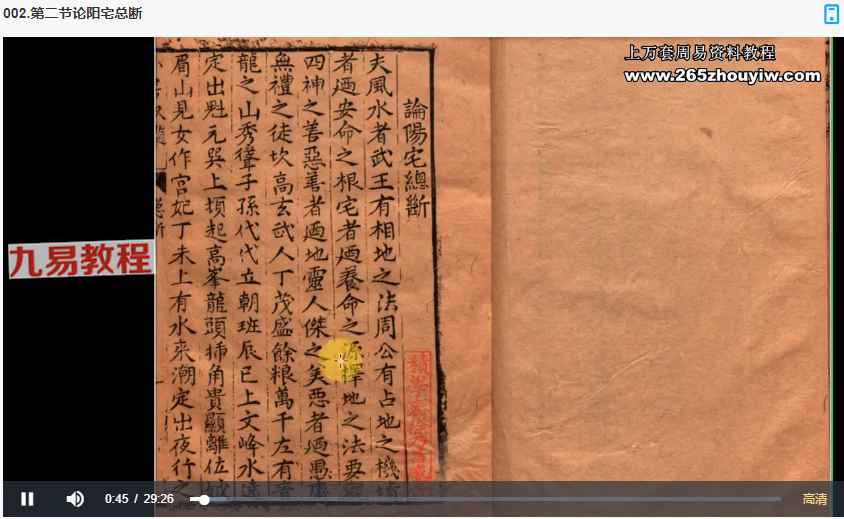 002.第二节论阳宅总断
上万套周易资料教程
www.265zhouyiw.com
論陽宅總斷
夫風水者武王有相地之法周公有占地之機
者廼安命之根宅者廼養命之源擇地之法要
四神之善惡善者廼地靈人傑之矣惡者廼愚
無禮之徒坎高玄武人丁茂盛餘粮萬千左有
龍之山秀聳子孫代代立朝班辰巳上文峰水遶
定出魁元巽上頓起高峯龍頭揷角貴顯離位
眉山見女作宫妃丁未上有水來潮定出夜行之
九易教程
0:45 / 29:26
高清